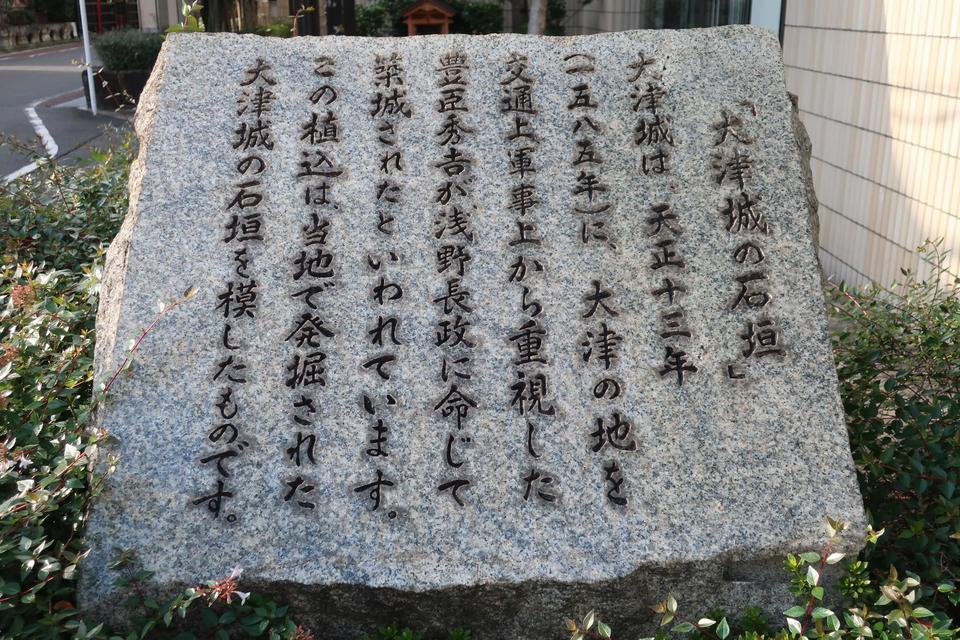 「大津城の石垣」
大津城は、天正十三年
(一五八五年)に、大津の地を
交通上軍事上から重視した
豊臣秀吉が浅野長政に命じて
築城されたといわれています。
この植込は当地で発掘された
大津城の石垣を模したものです。